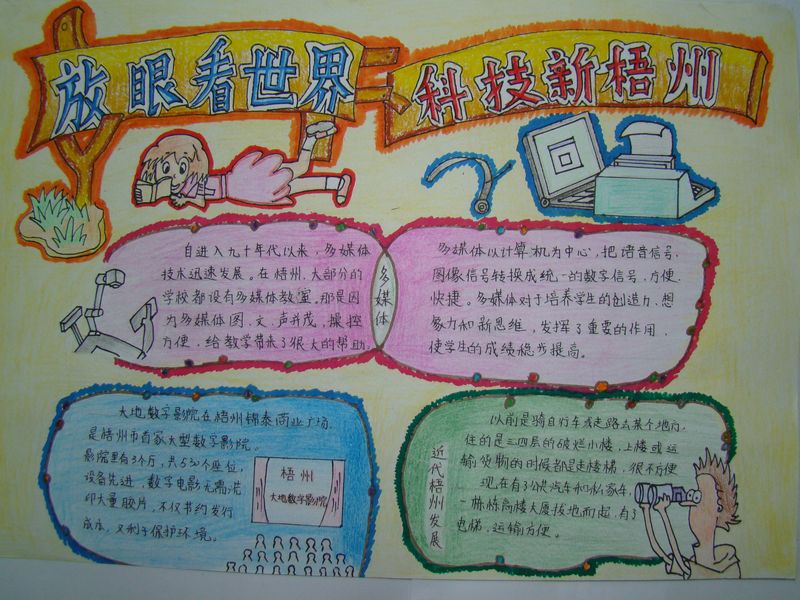 放眼看世界
科技新梧州
自进入九十年代以来，多媒体
技术迅速发展。在梧州，大部分的
学校都设有多媒体教室。那是因
为多媒体图、文、声并茂，操控
方便，给教学带来了很大的帮助。
多媒体
多媒体以计算机为中心，把语音信号，
图像信号转换成统一的数字信号，方便，
快捷。多媒体对于培养学生的创造力、想
象力和新思维，发挥了重要的作用，
使学生的成绩稳步提高。
大地数字影院在梧州锦泰商业广场，
是梧州市首家大型数字影院。
影院里有3个厅，共530个座位，
设备先进，数字电影无需洗
印大量胶片，不仅节约发行
成本，又利于保护环境。
梧州
大地数字影院
近代梧州发展
以前是骑自行车或走路去某个地方，
住的是三四层的破烂小楼，上楼或运
输货物的时候都是走楼梯，很不方便
现在有了公共汽车和私家车，
一栋栋高楼大厦拔地而起，有了
电梯，运输方便。